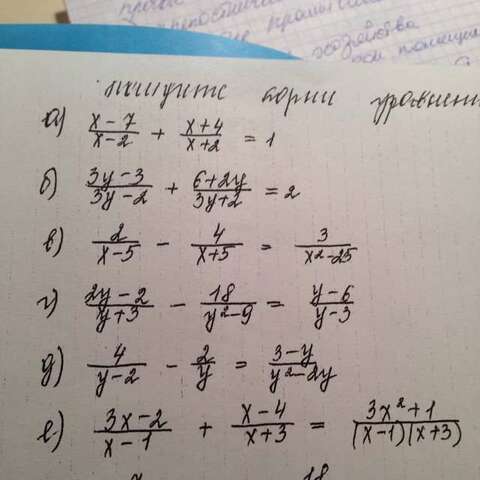 хозяйства
ищите корни уравнен
а) x-7/x-2 + x+4/x+2 = 1
б) 3y-3/3y-2 + 6+2y/3y+2 = 2
в) 2/x-5 - 4/x+5 = 3/x²-25
г) 2y-2/y+3 - 18/y²-9 = y-6/y-3
д) 4/y-2 - 2/y = 3-y/y²-2y
е) 3x-2/x-1 + x-4/x+3 = 3x²+1/(x-1)(x+3)
18